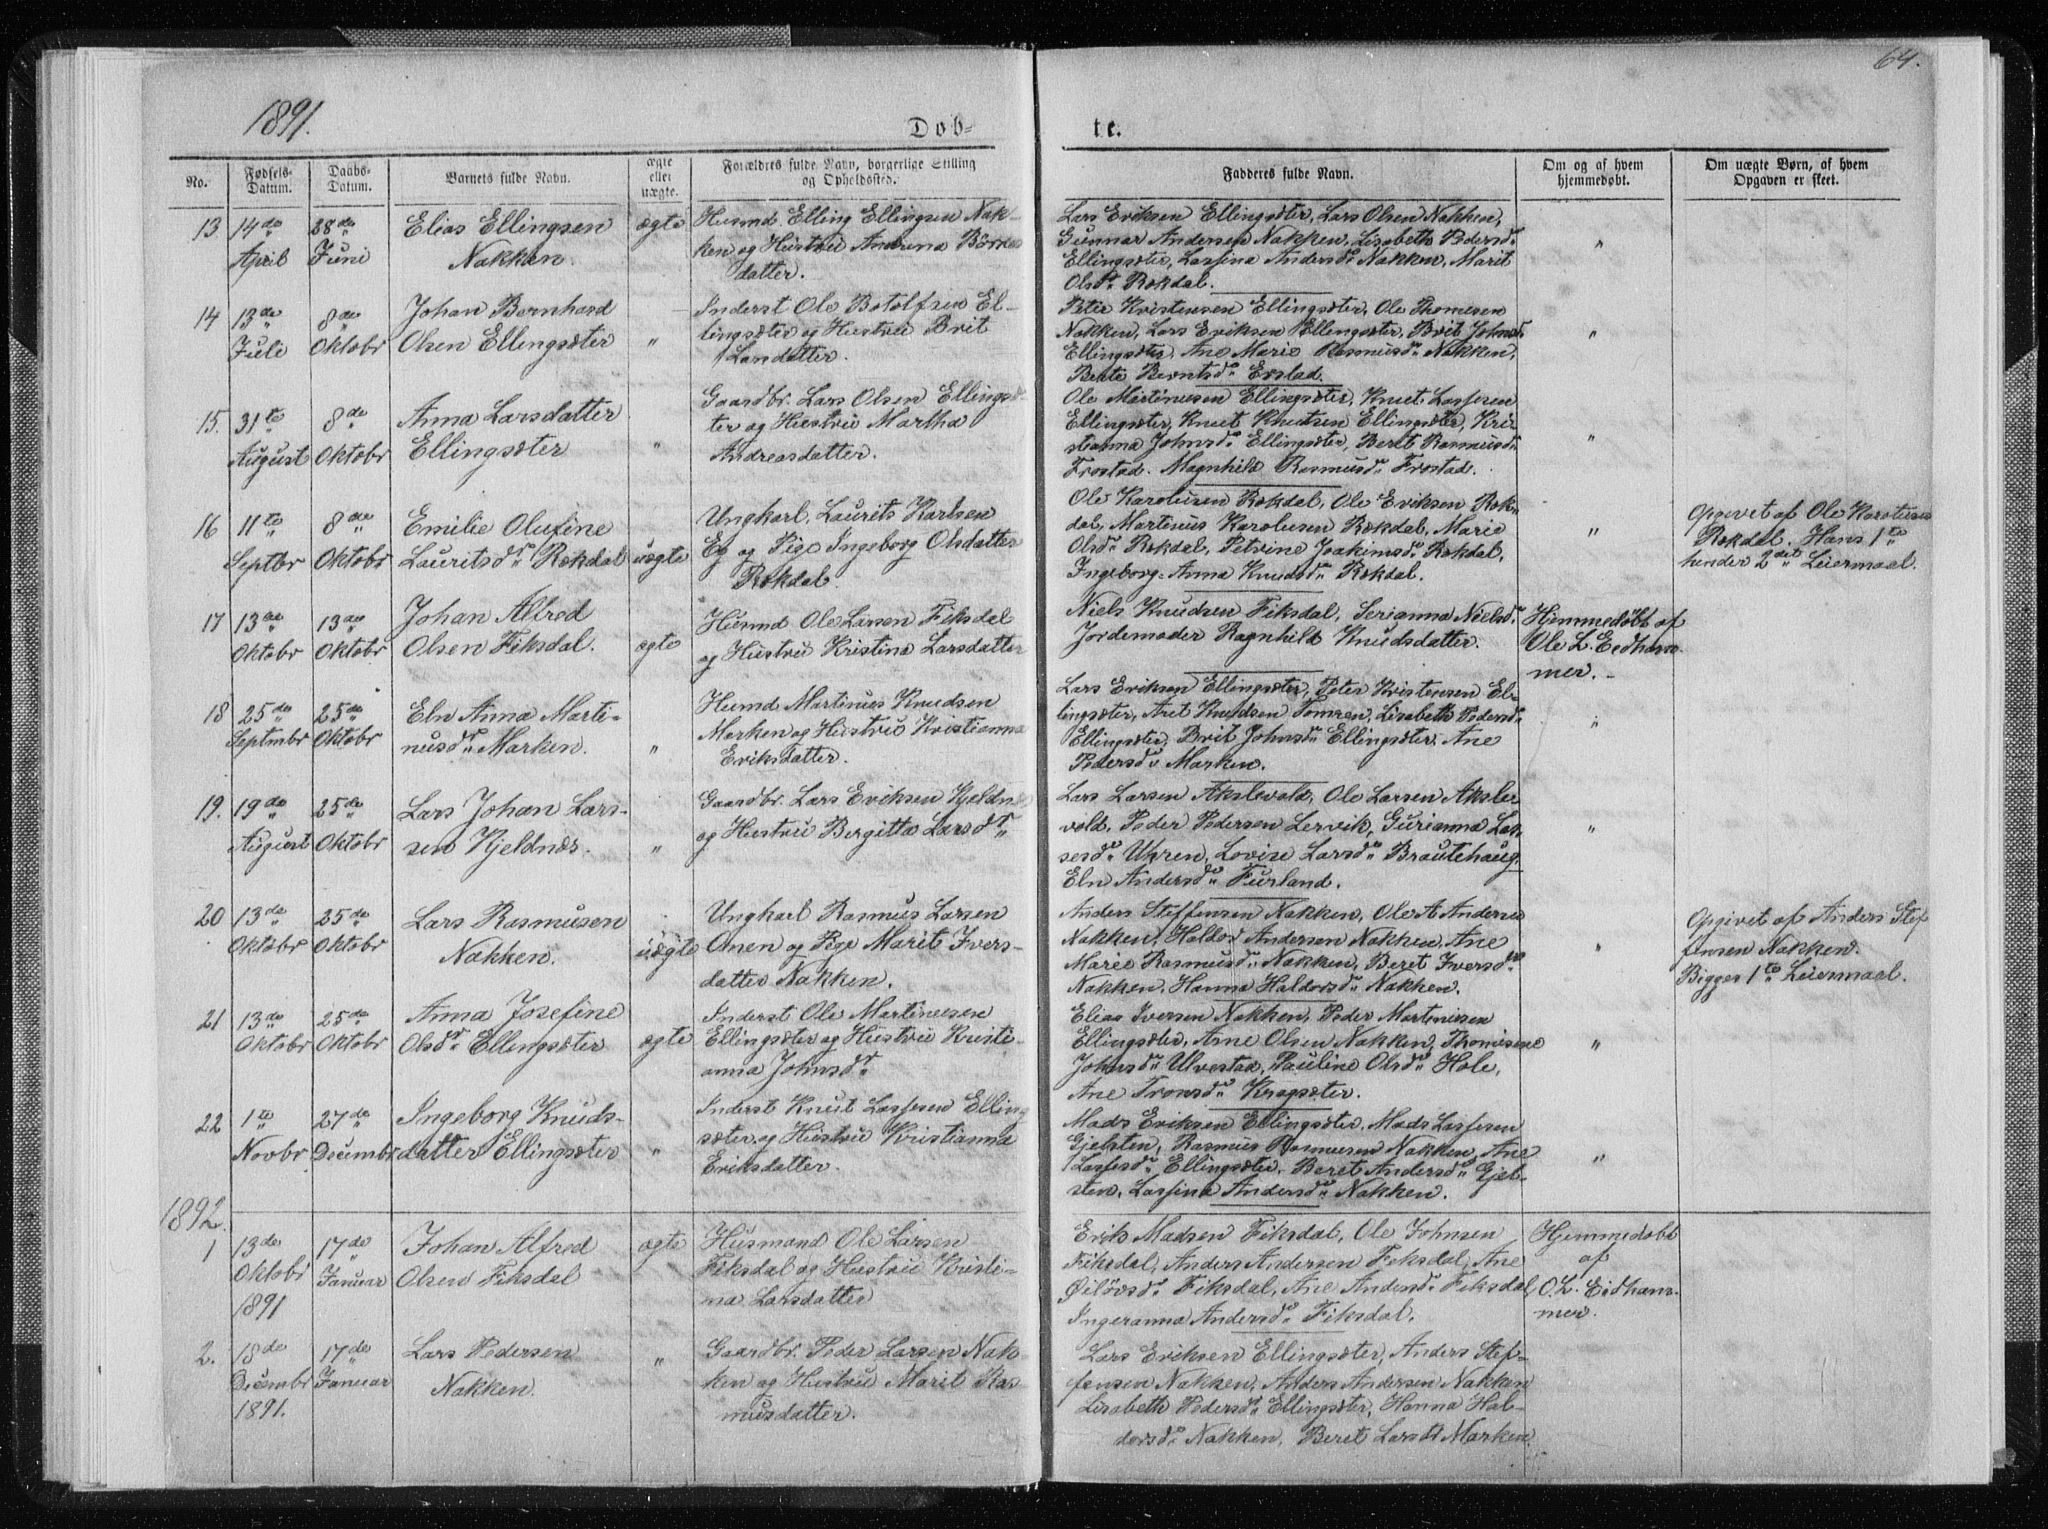 64.
1891.
Døb-
te.
No.
Fødsels-
Datum.
Daabs-
Datum.
Barnets fulde Navn.
ægte
eller
uægte.
Forældres fulde Navn, borgerlige Stilling
og Opholdssted.
Faddernes fulde Navn.
Om og af hvem
hjemmedøbt.
Om uægte Børn, af hvem
Opgaven er skeet.
13
14de
April
28de
Juni
Elias Ellingsen
Nakken.
ægte
Husmd Elling Ellingsen Nak-
ken og Hustru Andrina
datter.
Lars Eriksen Ellingsæter, Lars Olsen Nakken,
Gunnar Andersen Nakken, Lisabeth Pedersdr
Ellingsæter, Lassina Andersdr Nakken, Marit
Olsdr Rekdal.
"
14
13de
Juli
8de
Oktobr
Johan Bernhard
Olsen Ellingsæter
"
Inderst Ole Botolfsen El-
lingsæter og Hustru Brit
Larsdatter.
Peter Kristensen Ellingsæter, Ole Thomesen
Nakken, Lars Eriksen Ellingsæter, Brit Johnsdr
Ellingsæter, Ane Marie Rasmusdr Nakken,
Berte Berntsdr Erstad.
"
15.
31te
August
8de
Oktobr
Anna Larsdatter
Ellingsæter
"
Gaardbr. Lars Olsen Ellingsæ
ter og Hustru Martha
Andreasdatter.
Ole Martinusen Ellingsæter, Knut Lassesen
Ellingsæter, Knut Knutsen Ellingsæter, Kri-
stianna Johnsdr Ellingsæter, Beret Rasmusdr
Frostad. Magnhild Rasmusdr Frostad.
"
16
11te
Septbr
8de
Oktobr
Emilie Olufine
Lauritsdr Rekdal
uægte
Ungkarl Laurits Karlsen
Eg og Pige Ingeborg Olsdatter
Rekdal
Ole Karolusen Rekdal, Ole Eriksen Rek-
dal, Martinus Karolusen Rekdal, Marie
Olsdr Rekdal, Petrine Joakimsdr Rekdal,
Ingeborg-Anna Knudsdr Rekdal.
"
Opgivet af Ole Karolusen
Rekdal. Hans 1te
hendes 2det Leiermaal.
17
13de
Oktobr
13de
Oktobr
Johan Alfred
Olsen Fiksdal.
ægte
Husmd Ole Larsen Fiksdal
og Hustru Kristina Larsdatter
Niels Knudsen Fiksdal, Serianna Nielsdr
Jordemoder Ragnhild Knudsdatter.
Hjemmedøbt af
Ole L. Eidham-
mer.
18
25de
Septmbr
25de
Oktobr
Eln Anna Marti-
nusdr Marken.
"
Husmd Martinus Knudsen
Marken og Hustru Kristianna
Eriksdatter.
Lars Eriksen Ellingsæter, Peter Kristensen El-
lingsæter, Aret Knudsen Tomren, Lisabeth Pedersdr
Ellingsæter, Brit Johnsdr Ellingsæter, Ane
Pedersdr Marken.
"
19.
19de
August
25de
Oktobr
Lars Johan Lars-
sen Kjeldnæs.
"
Gaardbr. Lars Eriksen Kjeldnæs
og Hustru Bergitta Larsdtr
Lars Larsen Akslevold, Ole Larsen Aksle-
vold, Peder Pedersen Lervik, Gurianna Las-
sesdr Uhren, Lovise Larsdr Brautehaug,
Eln Andersdr Furland.
"
20
13de
Oktobr
25de
Oktobr
Lars Rasmusen
Nakken.
uægte
Ungkarl Rasmus Larsen
Onen og Pige Marit Ivers-
datter Nakken.
Anders Steffensen Nakken, Ole A Andersen
Nakken, Haldor Andersen Nakken, Ane
Marie Rasmusdr Nakken, Beret Iversdr
Nakken, Hanna Haldorsdr Nakken.
"
Opgivet af Anders Stef
fensen Nakken.
Begges 1te Leiermaal.
21
13de
Oktobr
25de
Oktobr
Anna Josefine
Olsdr Ellingsæter
ægte
Inderst Ole Martinusen
Ellingsæter og Hustru Kristi-
anna Johnsdr
Elias Iversen Nakken, Peder Martinusen
Ellingsæter, Arne Olsen Nakken, Thomisine
Johnsdr Ulvestad, Pauline Olsdr Hole,
Ane Tronsdr Kragsæter.
"
22
1te
Novbr
27de
Decmbr
Ingeborg Knuds-
datter Ellingsæter
"
Inderst Knut Lassesen Elling
sæter og Hustru Kristianna
Eriksdatter.
Mads Eriksen Ellingsæter, Mads Lassesen
Gjelsten, Rasmus Rasmusen Nakken, Ane
Lassesdr Ellingsæter, Beret Andersdr Gjel-
sten, Lassina Andersdr Nakken.
"
1892.
1
13de
Oktobr
1891
17de
Januar
Johan Alfred
Olsen Fiksdal
ægte
Husmand Ole Larsen
Fiksdal og Hustru Kristi-
na Larsdatter
Erik Madsen Fiksdal, Ole Johnsen
Fiksdal, Anders Andersen Fiksdal, Ane
Fiksdal, Ane Andersdr Fiksdal,
Ingeranna Andersdr Fiksdal.
Hjemmedøbt
af
O. L. Eidham-
mer.
2.
18de
Decmbr
1891.
17de
Januar
Lars Pedersen
Nakken.
"
Gaardbr. Peder Larsen Nak-
ken og Hustru Marit Ras
musdatter.
Lars Eriksen Ellingsæter, Anders Stef-
fensen Nakken, Anders Andersen Nakken
Lisabeth Pedersdr Ellingsæter, Hanna Hal-
dorsdr Nakken, Beret Larsdr Marken.